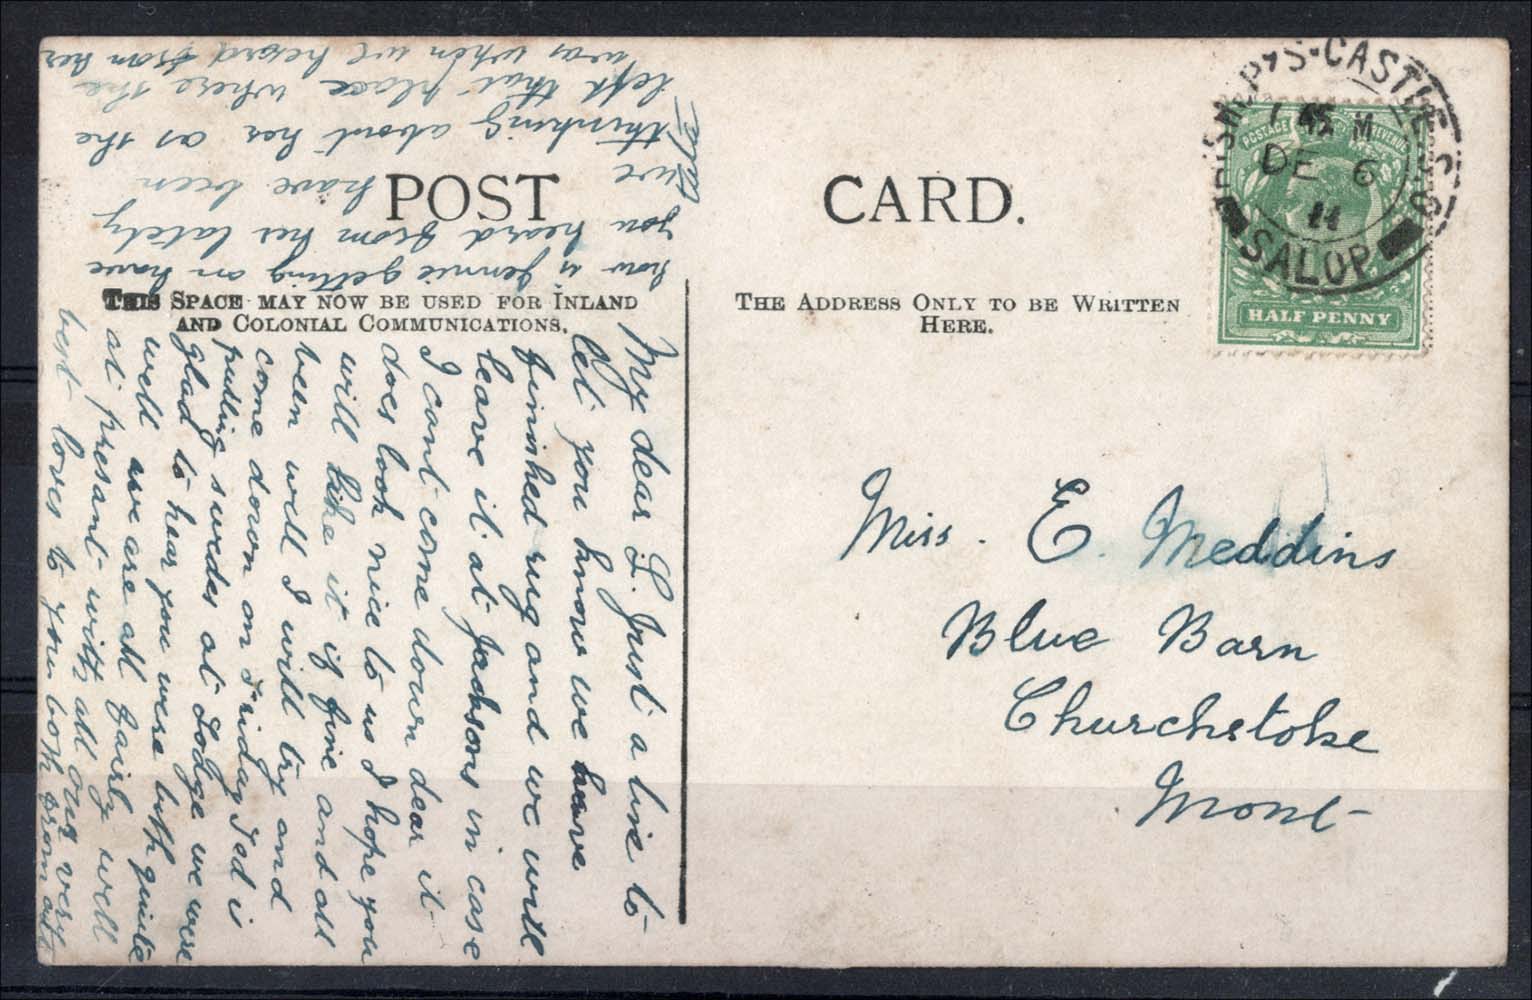 POST CARD.
THIS SPACE MAY NOW BE USED FOR INLAND
AND COLONIAL COMMUNICATIONS.
THE ADDRESS ONLY TO BE WRITTEN
HERE.
BISHOP'S-CASTLE S.O.
DE 6
11
SALOP
POSTAGE REVENUE
HALF PENNY
Miss. E. Meddins
Blue Barn
Churchstoke
Mont
My dear L. Just a line to
let you know we have
finished rug and we will
leave it at Jacksons in case
I cant come down dear it
does look nice to us I hope you
will like it if fine and all
been well I will try and
come down on Friday Ted is
pulling swedes at Lodge we were
glad to hear you were both quite
well we are all fairly well
at presant with all our very
best loves to you both from all
how is Jennie getting on have
you heard from her lately
we have been
thinking about her as the
left that place where she
was when we heard from her